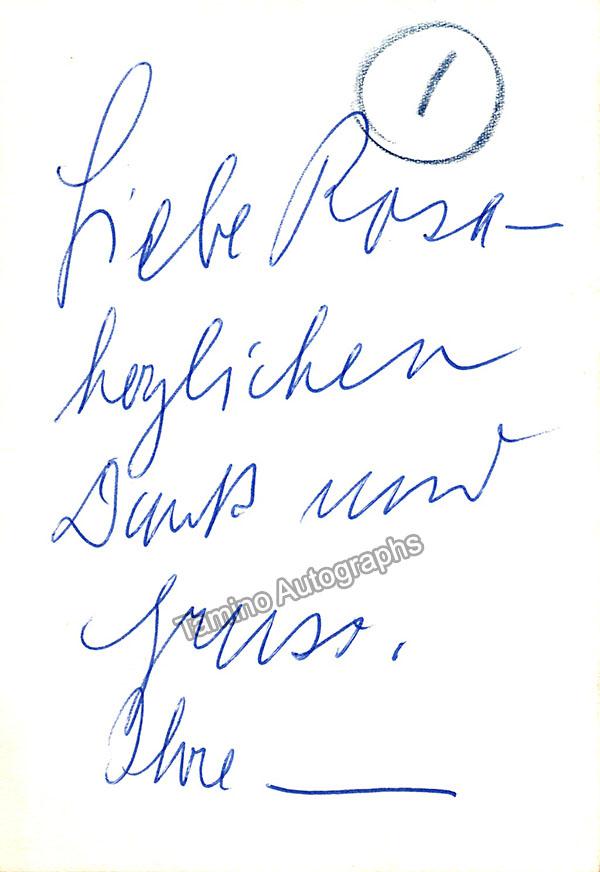 1
Liebe Rosa—
herzlichen
Dank und
Gruss.
Ihre —
Tamino Autographs